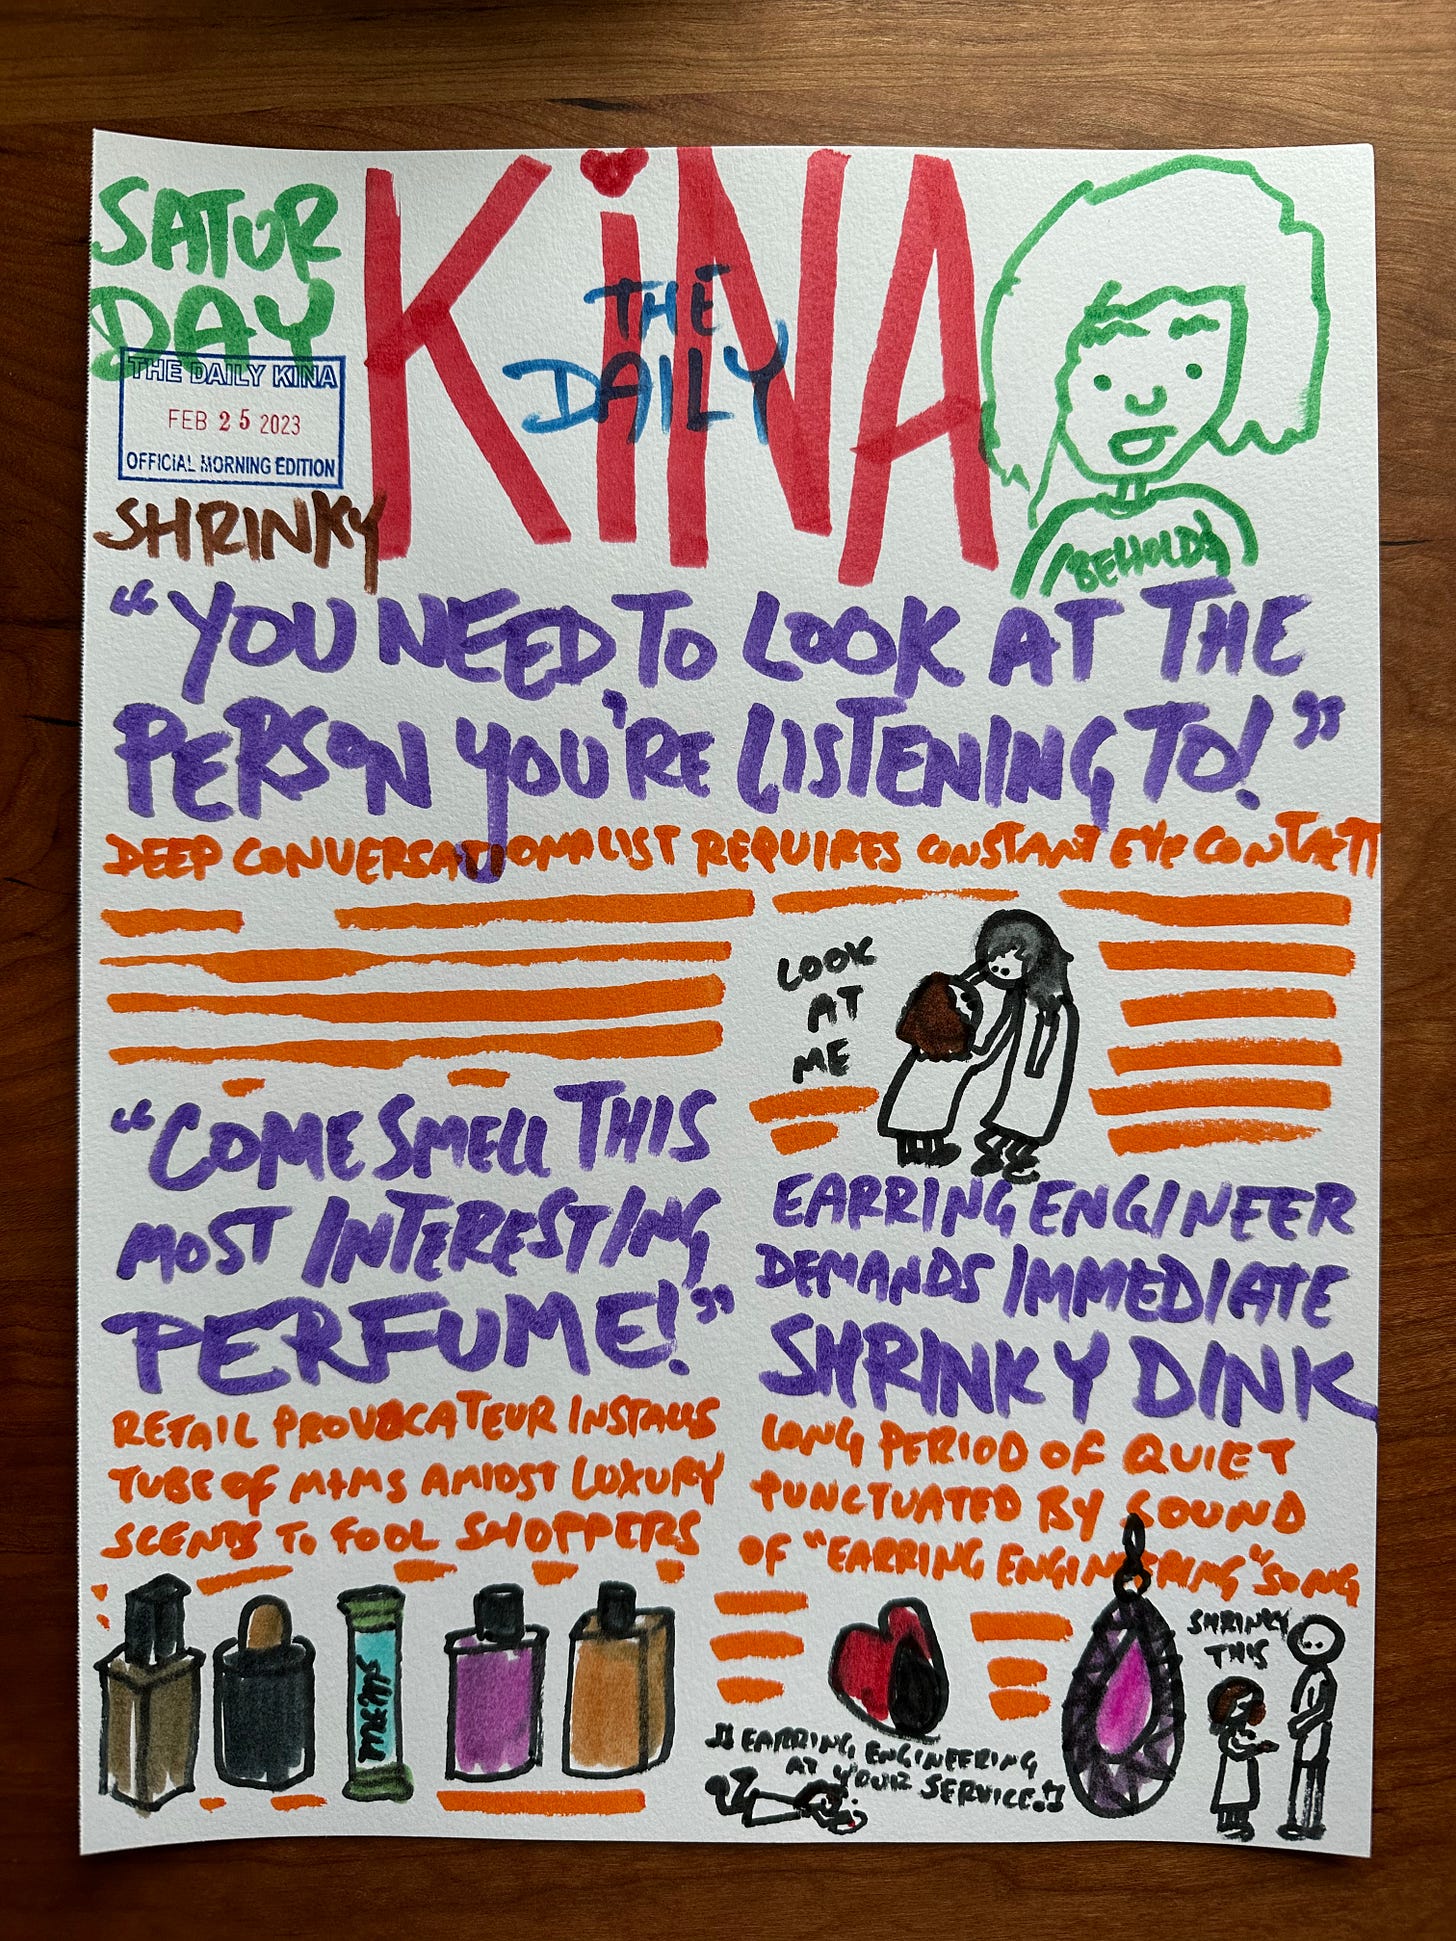 SATUR
DAY
THE DAILY KINA
FEB 25 2023
OFFICIAL MORNING EDITION
SHRINKY
KiNA
THE
DAILY
BEHOLD!
"YOU NEED TO LOOK AT THE
PERSON YOU'RE LISTENING TO!"
DEEP CONVERSATIONALIST REQUIRES CONSTANT EYE CONTACT
LOOK
AT
ME
"COME SMELL THIS
MOST INTERESTING
PERFUME!"
RETAIL PROVOCATEUR INSTALLS
TUBE OF M+MS AMIDST LUXURY
SCENTS TO FOOL SHOPPERS
M&MS
EARRING ENGINEER
DEMANDS IMMEDIATE
SHRINKY DINK
LONG PERIOD OF QUIET
PUNCTUATED BY SOUND
OF "EARRING ENGINEERING" SONG
SHRINKY
THIS
♫ EARRING ENGINEERING
AT YOUR SERVICE! ♫